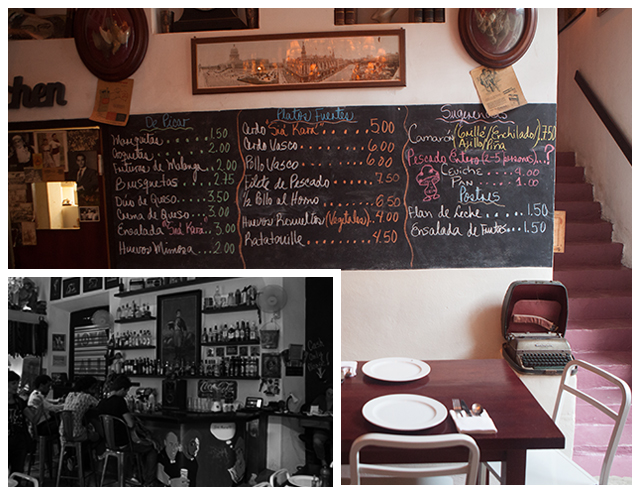 chen
De Picar
Mariquitas ........ 1.50
Croquetas ....... 2.00
Frituras de Malanga .. 2.00
Brusquetas ...... 2.75
Dúo de Queso ..... 3.50
Crema de Queso ..... 3.00
Ensalada "Sia Kara" .. 3.00
Huevos Mimosa ... 2.00
Platos Fuertes
Cerdo "Sia Kara" ...... 5.00
Cerdo Vasco ........ 6.00
Pollo Vasco ........ 6.00
Filete de Pescado ..... 7.50
1/2 Pollo al Horno ..... 6.50
Huevos Revueltos (Vegetales) .. 4.00
Ratatouille ......... 4.50
Sugerencias
Camarón (Grillé/Enchilado) 7.50
Ajillo/Piña
Pescado Entero (2-5 personas)...?
Ceviche ...... 4.00
Pan ....... 1.00
Postres
Flan de Leche ....... 1.50
Ensalada de Frutas .. 1.50
Coca-Cola